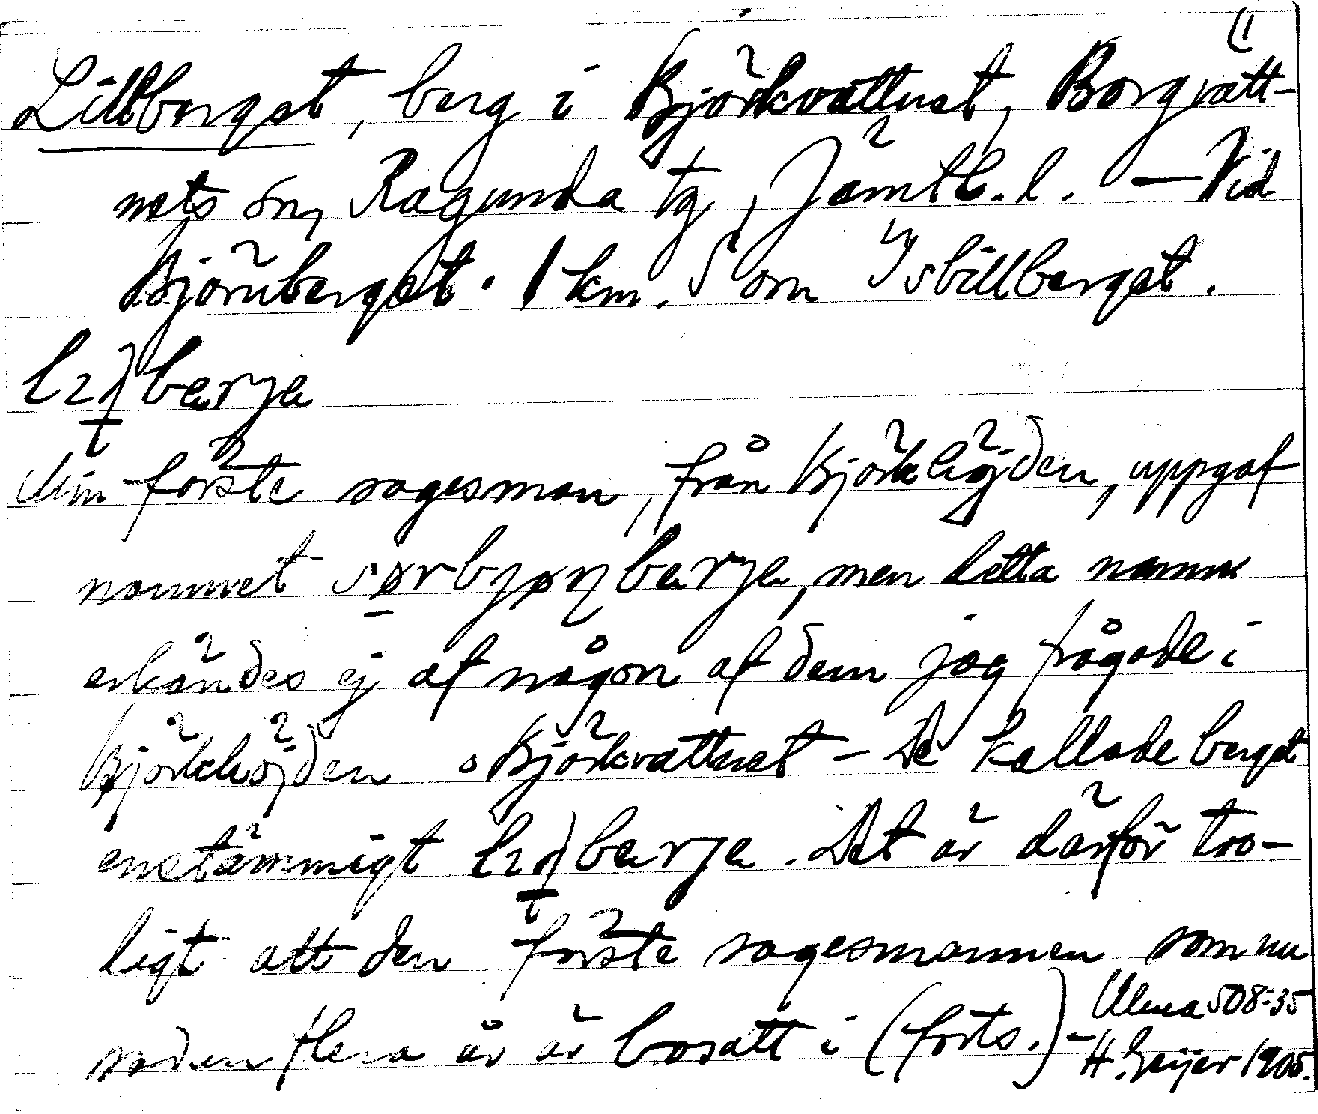 (1
Lillberget, berg i Björkvattnet, Borgvatt-
nets sn, Ragunda tg, Jämtl. l. — Vid
Björnberget. 1 km. S om Isbillberget.
berje
Min förste sagesman, från Björkhöjden, uppgaf
namnet sørbjøɳberje, men detta namn
erkändes ej af någon af dem jag frågade i
Björkhöjden o Björkvattnet — De kallade berget
enstämmigt berje. Det är därför tro-
ligt att den förste sagesmannen som nu
sedan flera år är bosatt i (forts.) –
Ulma 508:35
H. Geijer 1905.